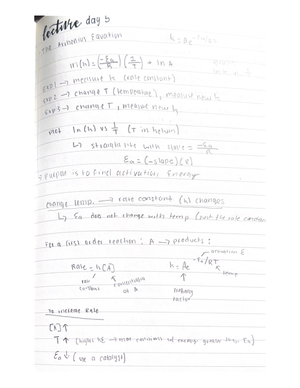 lecture day 5
The Arrhenius Equation
ln(k) = (-Ea/R)(1/T) + ln A
exp 1 → measure k (rate constant)
exp 2 → change T (temperature), measure new k
exp 3 → change T, measure new k
plot ln(k) vs 1/T (T in kelvin)
↳ straight line with slope = -Ea/R
Ea = (-slope)(R)
→ purpose is to find activation energy
change temp. → rate constant (k) changes
↳ Ea does not change with temp (just the rate constant
For a first order reaction: A → products:
activation E
Rate = k[A] k = Ae^-Ea/RT
rate constant concentration of A temp
factor
to increase Rate
[A] ↑
T ↑ (higher KE → more collisions w/ energy greater than Ea)
Ea ↓ (use a catalyst)